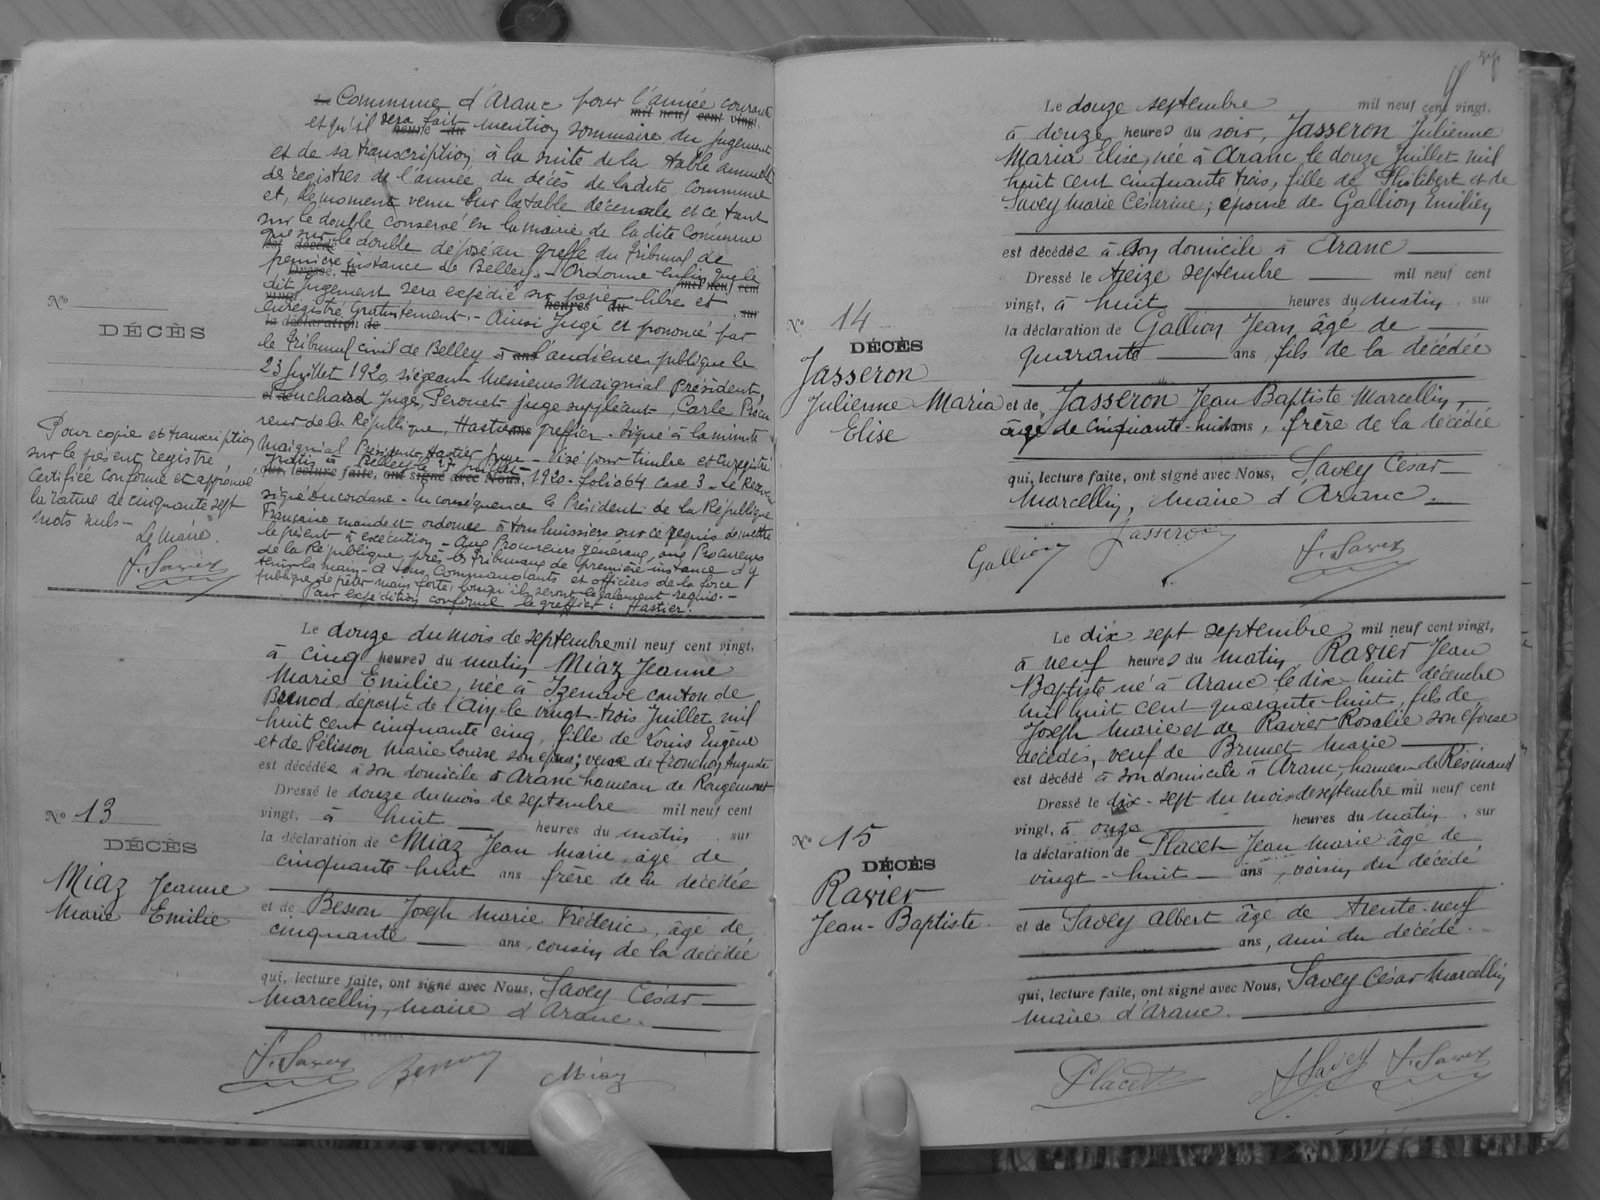 Commune d'Aranc pour l'année courante
mil neuf cent vingt
et qu'il sera fait mention sommaire du jugement
heure du
et de sa transcription à la suite de la table annuelle
des registres de l'année du décès de ladite Commune
et, le moment venu sur la table décennale et ce tant
sur le double conservé en la mairie de la dite Commune
que sur le double déposé au greffe du Tribunal de
est décédé
première instance de Belley. - Ordonne enfin que le
Dressé le mil neuf cent
dit jugement sera expédié sur papier libre et
vingt heures du sur
enregistré gratuitement. - Ainsi jugé et prononcé par
la déclaration de
le Tribunal civil de Belley à l'audience publique le
ans
23 Juillet 1920, siégeant Messieurs Maignial Président,
Juge, Perouet juge suppléant, Carle Procu
reur de la République, Hastier greffier. Signé à la minute
ans
Maignial Président Hastier - Visé pour timbre et Enregistré
gratis à Belley le 27 juillet 1920 - folio 64 case 3 - Le Receveur
qui, lecture faite, ont signé avec Nous,
signé Ducordane - En conséquence le Président de la République
Française mande et ordonne à tous huissiers sur ce requis de mettre
le présent à exécution - Aux Procureurs généraux, aux Procureurs
de la République près les Tribunaux de première instance d'y
tenir la main - A tous Commandants et officiers de la force
publique de prêter main forte, lorsqu'ils seront légalement requis. -
Pour expédition conforme le greffier : Hastier.
No
DÉCÈS
Pour copie et transcription
sur le présent registre
Certifiée conforme et approuvé
la rature de cinquante sept
mots nuls -
Le Maire.
S. Savey
No 13
DÉCÈS
Miaz Jeanne
Marie Emilie
Le douze du mois de septembre mil neuf cent vingt,
à cinq heures du matin Miaz Jeanne
Marie Emilie, née à Izenave canton de
Brénod, départt de l'Ain le vingt-trois Juillet mil
huit cent cinquante cinq, fille de Louis Eugène
et de Pélisson Marie Louise son épouse; veuve de Tronchon Auguste
est décédée à son domicile à Aranc hameau de Rougemont
Dressé le douze du mois de septembre mil neuf cent
vingt, à huit heures du matin, sur
la déclaration de Miaz Jean Marie, âgé de
cinquante huit ans frère de la décédée
et de Besson Joseph Marie Frédéric, âgé de
cinquante ans, cousin de la décédée
qui, lecture faite, ont signé avec Nous, Savey César
Marcellin, Maire d'Aranc.
S. Savey Besson Miaz
Le douze septembre mil neuf cent vingt,
à douze heures du soir, Jasseron Julienne
Maria Elise, née à Aranc, le douze Juillet mil
huit cent cinquante trois, fille de Philibert et de
Savey Marie Césarine; épouse de Gallion Emilien
est décédée à son domicile à Aranc
Dressé le treize septembre mil neuf cent
vingt, à huit heures du matin, sur
la déclaration de Gallion Jean, âgé de
quarante ans, fils de la décédée
et de Jasseron Jean Baptiste Marcellin,
âgé de cinquante-huit ans, frère de la décédée
qui, lecture faite, ont signé avec Nous, Savey César
Marcellin, Maire d'Aranc.
Gallion Jasseron S. Savey
No 14
DÉCÈS
Jasseron
Julienne Maria
Elise
Le dix sept septembre mil neuf cent vingt,
à neuf heures du matin Ravier Jean
Baptiste né à Aranc le dix-huit décembre
mil huit cent quarante-huit, fils de
Joseph Marie et de Ravier Rosalie son épouse
décédés, veuf de Brunet Marie
est décédé à son domicile à Aranc, hameau de Résinand
Dressé le dix-sept du mois de septembre mil neuf cent
vingt, à onze heures du matin, sur
la déclaration de Placet Jean Marie âgé de
vingt-huit ans, voisin du décédé
et de Savey Albert âgé de trente-neuf
ans, ami du décédé.
qui, lecture faite, ont signé avec Nous, Savey César Marcellin
Maire d'Aranc.
Placet A Savey S. Savey
No 15
DÉCÈS
Ravier
Jean-Baptiste